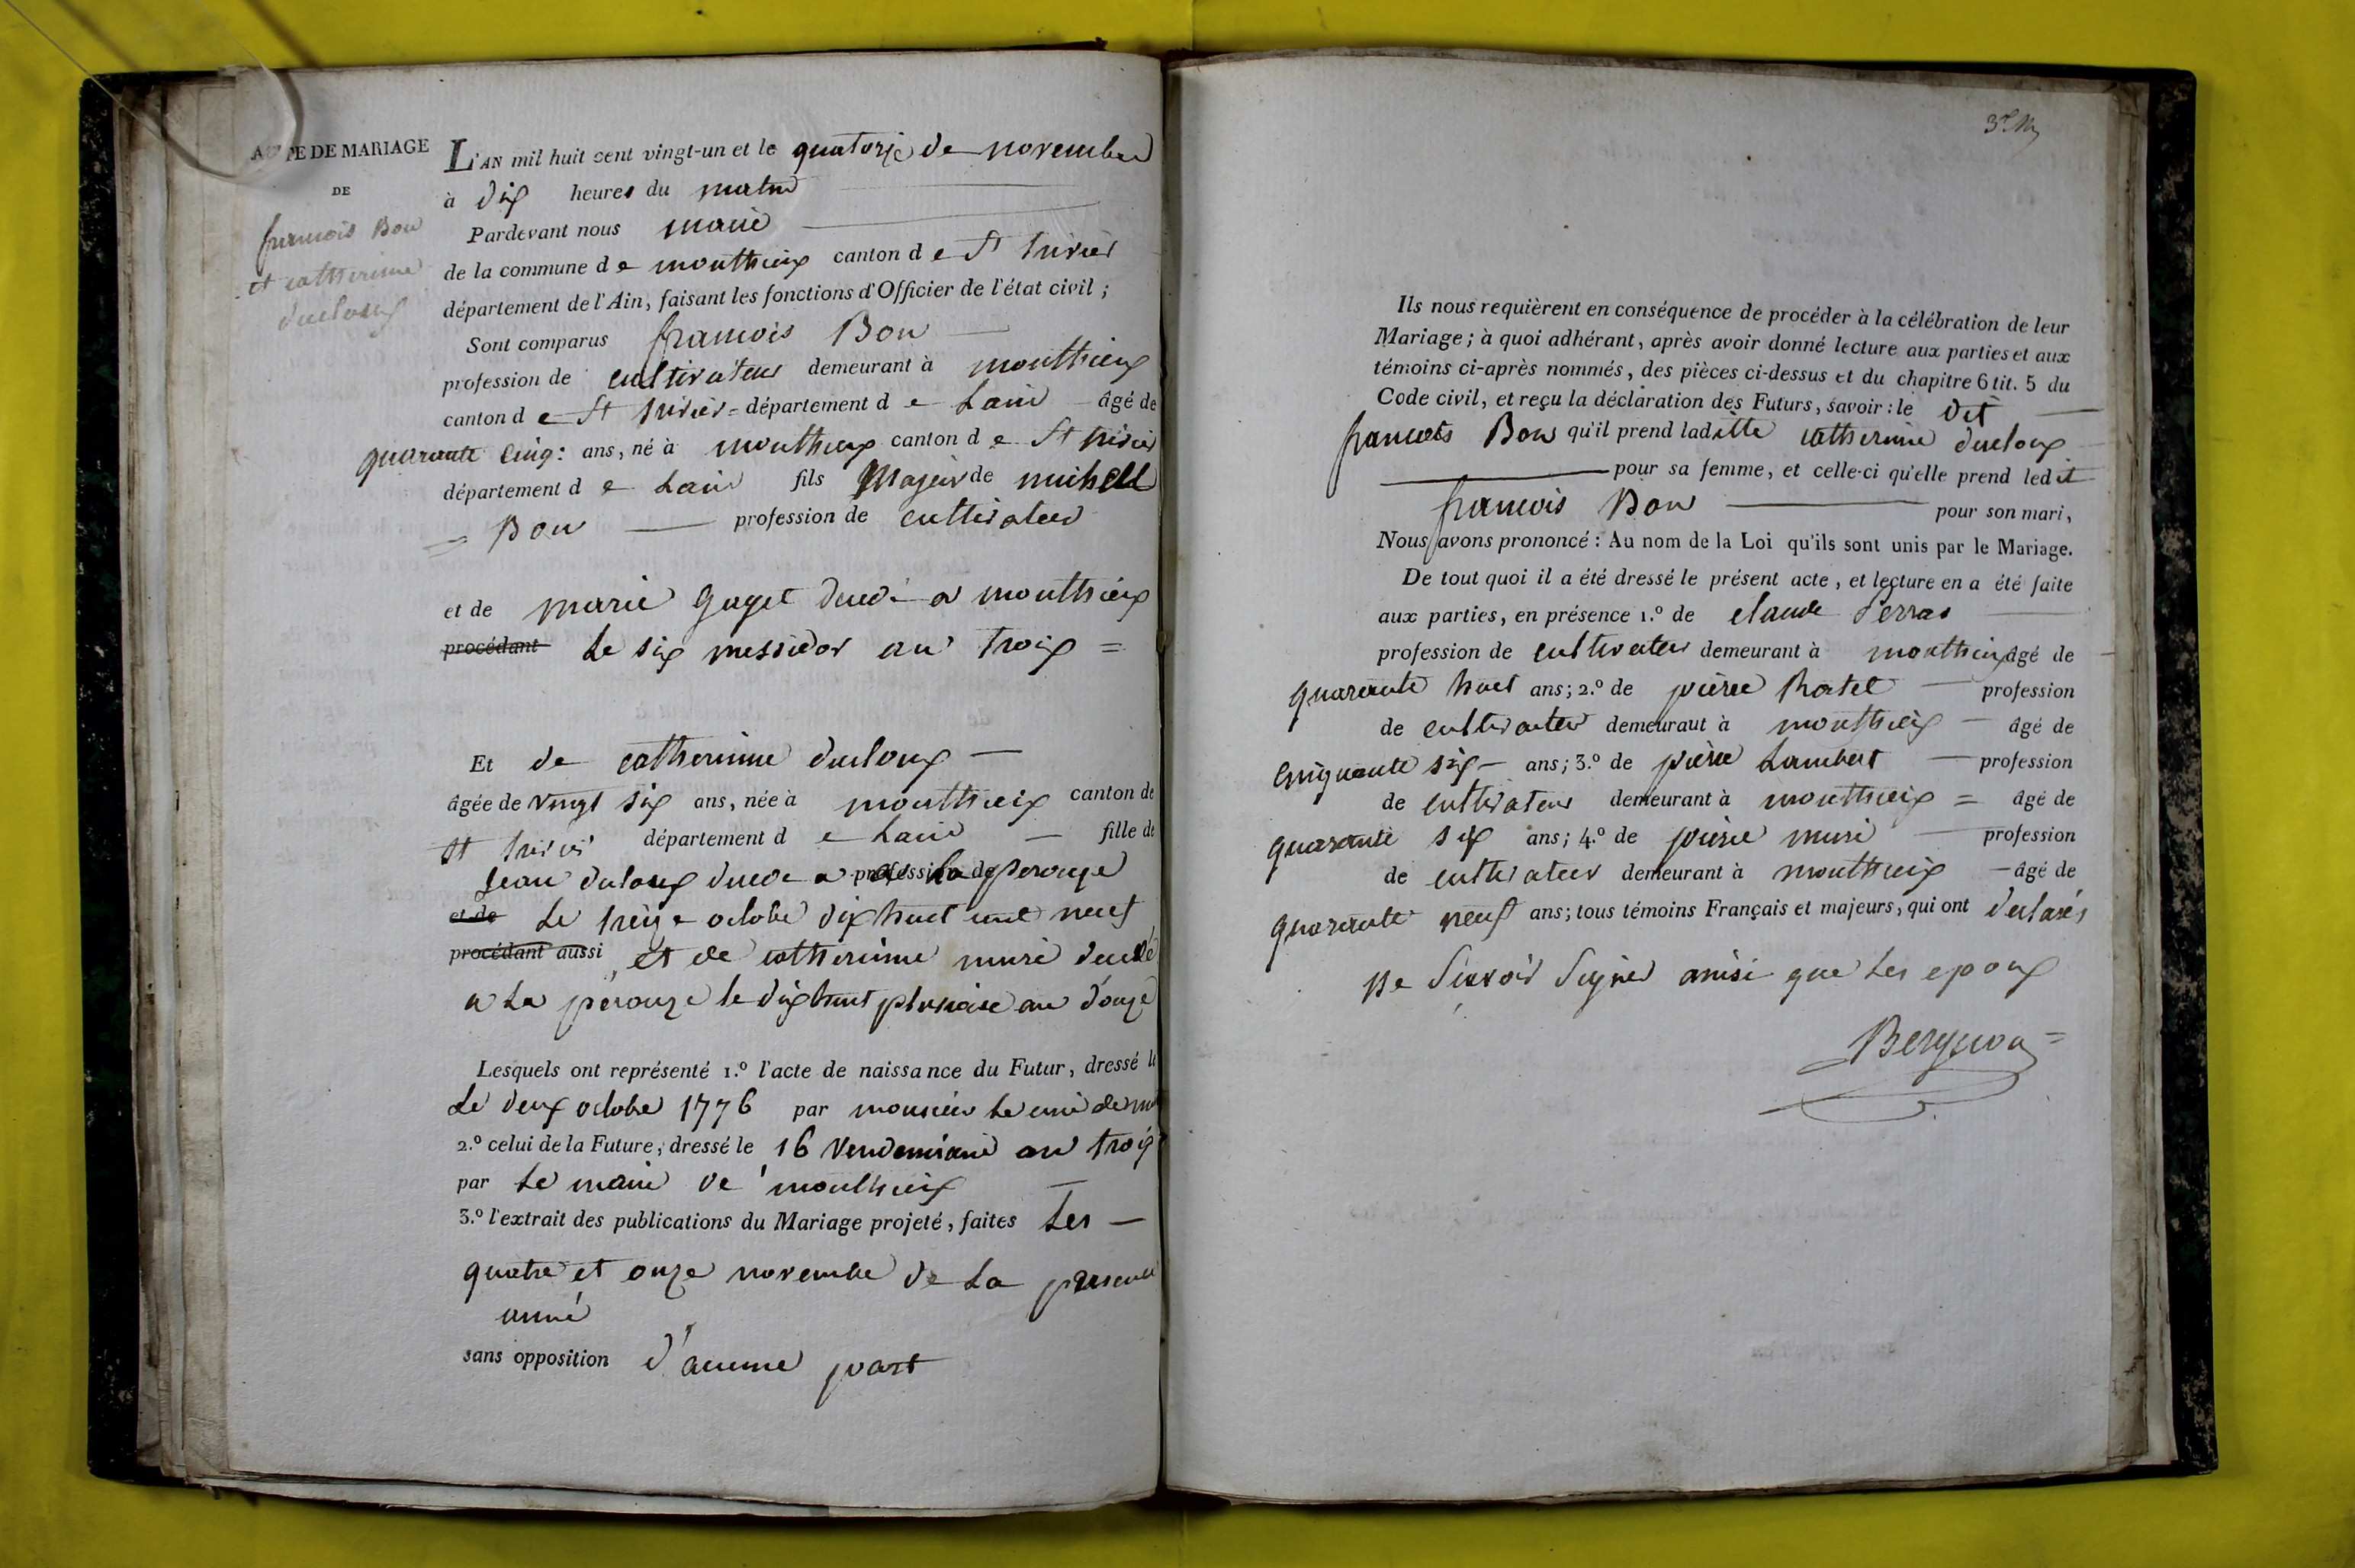 ACTE DE MARIAGE
DE
francois Bon
et catherinne
ducloux
L'AN mil huit cent vingt-un et le quatorze de novembre
à dix heures du matin
Pardevant nous maire
de la commune de monthieux canton de St trivier
département de l'Ain, faisant les fonctions d'Officier de l'état civil ;
Sont comparus francois Bon
profession de cultivateur demeurant à monthieux
canton de St trivier = département de Lain âgé de
quarante cinq : ans, né à monthieux canton de St trivier
département de Lain fils Majeur de michell
= Bon profession de cultivateur
et de marie gayet decd. a monthieux
procédant Le six messidor an troix =
Et de catherinne ducloux
âgée de vingt six ans, née à monthieux canton de
St trivier département de Lain fille de
jean duloux decd. a profession de La perouze
et de Le treize octobre dix huit cent neuf
procédant aussi et de catherinne muré decedé
a La pérouze le dix huit pluviose an douze
Lesquels ont représenté 1.º l'acte de naissance du Futur, dressé le
Le deux octobre 1776 par monsieur Le curé de
2.º celui de la Future, dressé le 16 vendemiaire an troix
par Le maire de monthieux
3.º l'extrait des publications du Mariage projeté, faites Les
quatre et onze novembre de La presente
anné
sans opposition d'aucune part
Ils nous requièrent en conséquence de procéder à la célébration de leur
Mariage ; à quoi adhérant, après avoir donné lecture aux parties et aux
témoins ci-après nommés, des pièces ci-dessus et du chapitre 6 tit. 5 du
Code civil, et reçu la déclaration des Futurs, savoir : le dit
francois Bon qu'il prend laditte catherinne ducloux
pour sa femme, et celle-ci qu'elle prend ledit
francois Bon pour son mari,
Nous avons prononcé : Au nom de la Loi qu'ils sont unis par le Mariage.
De tout quoi il a été dressé le présent acte, et lecture en a été faite
aux parties, en présence 1.º de claude Perras
profession de cultivateur demeurant à monthieux âgé de
quarante huit ans ; 2.º de pierre Ratel profession
de cultivateur demeuraut à monthieux âgé de
cinquante six ans ; 3.º de pierre Lambert profession
de cultivateur demeurant à monthieux = âgé de
quarante six ans ; 4.º de pierre muré profession
de cultivateur demeurant à monthieux âgé de
quarante neuf ans ; tous témoins Français et majeurs, qui ont declarés
Ne Savoir Signer ainsi que Les epoux